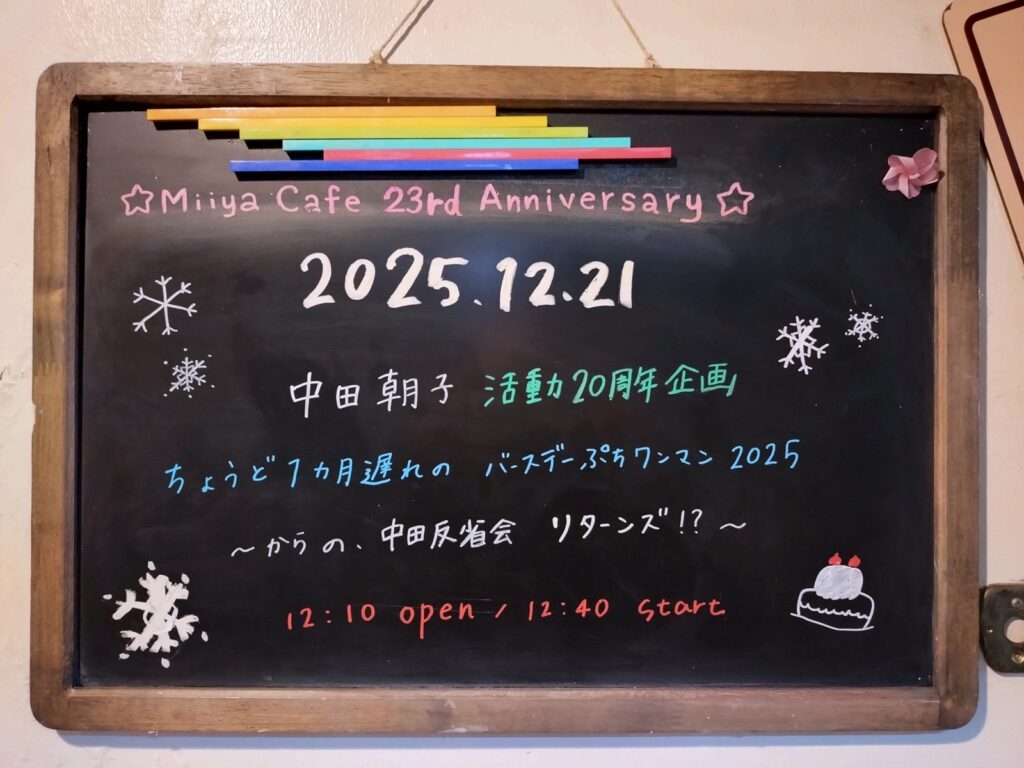 ☆Miiya Cafe 23rd Anniversary☆
2025.12.21
中田朝子 活動20周年企画
ちょうど1カ月遅れの バースデーぷちワンマン 2025
～からの、中田反省会 リターンズ!?～
12:10 open / 12:40 start